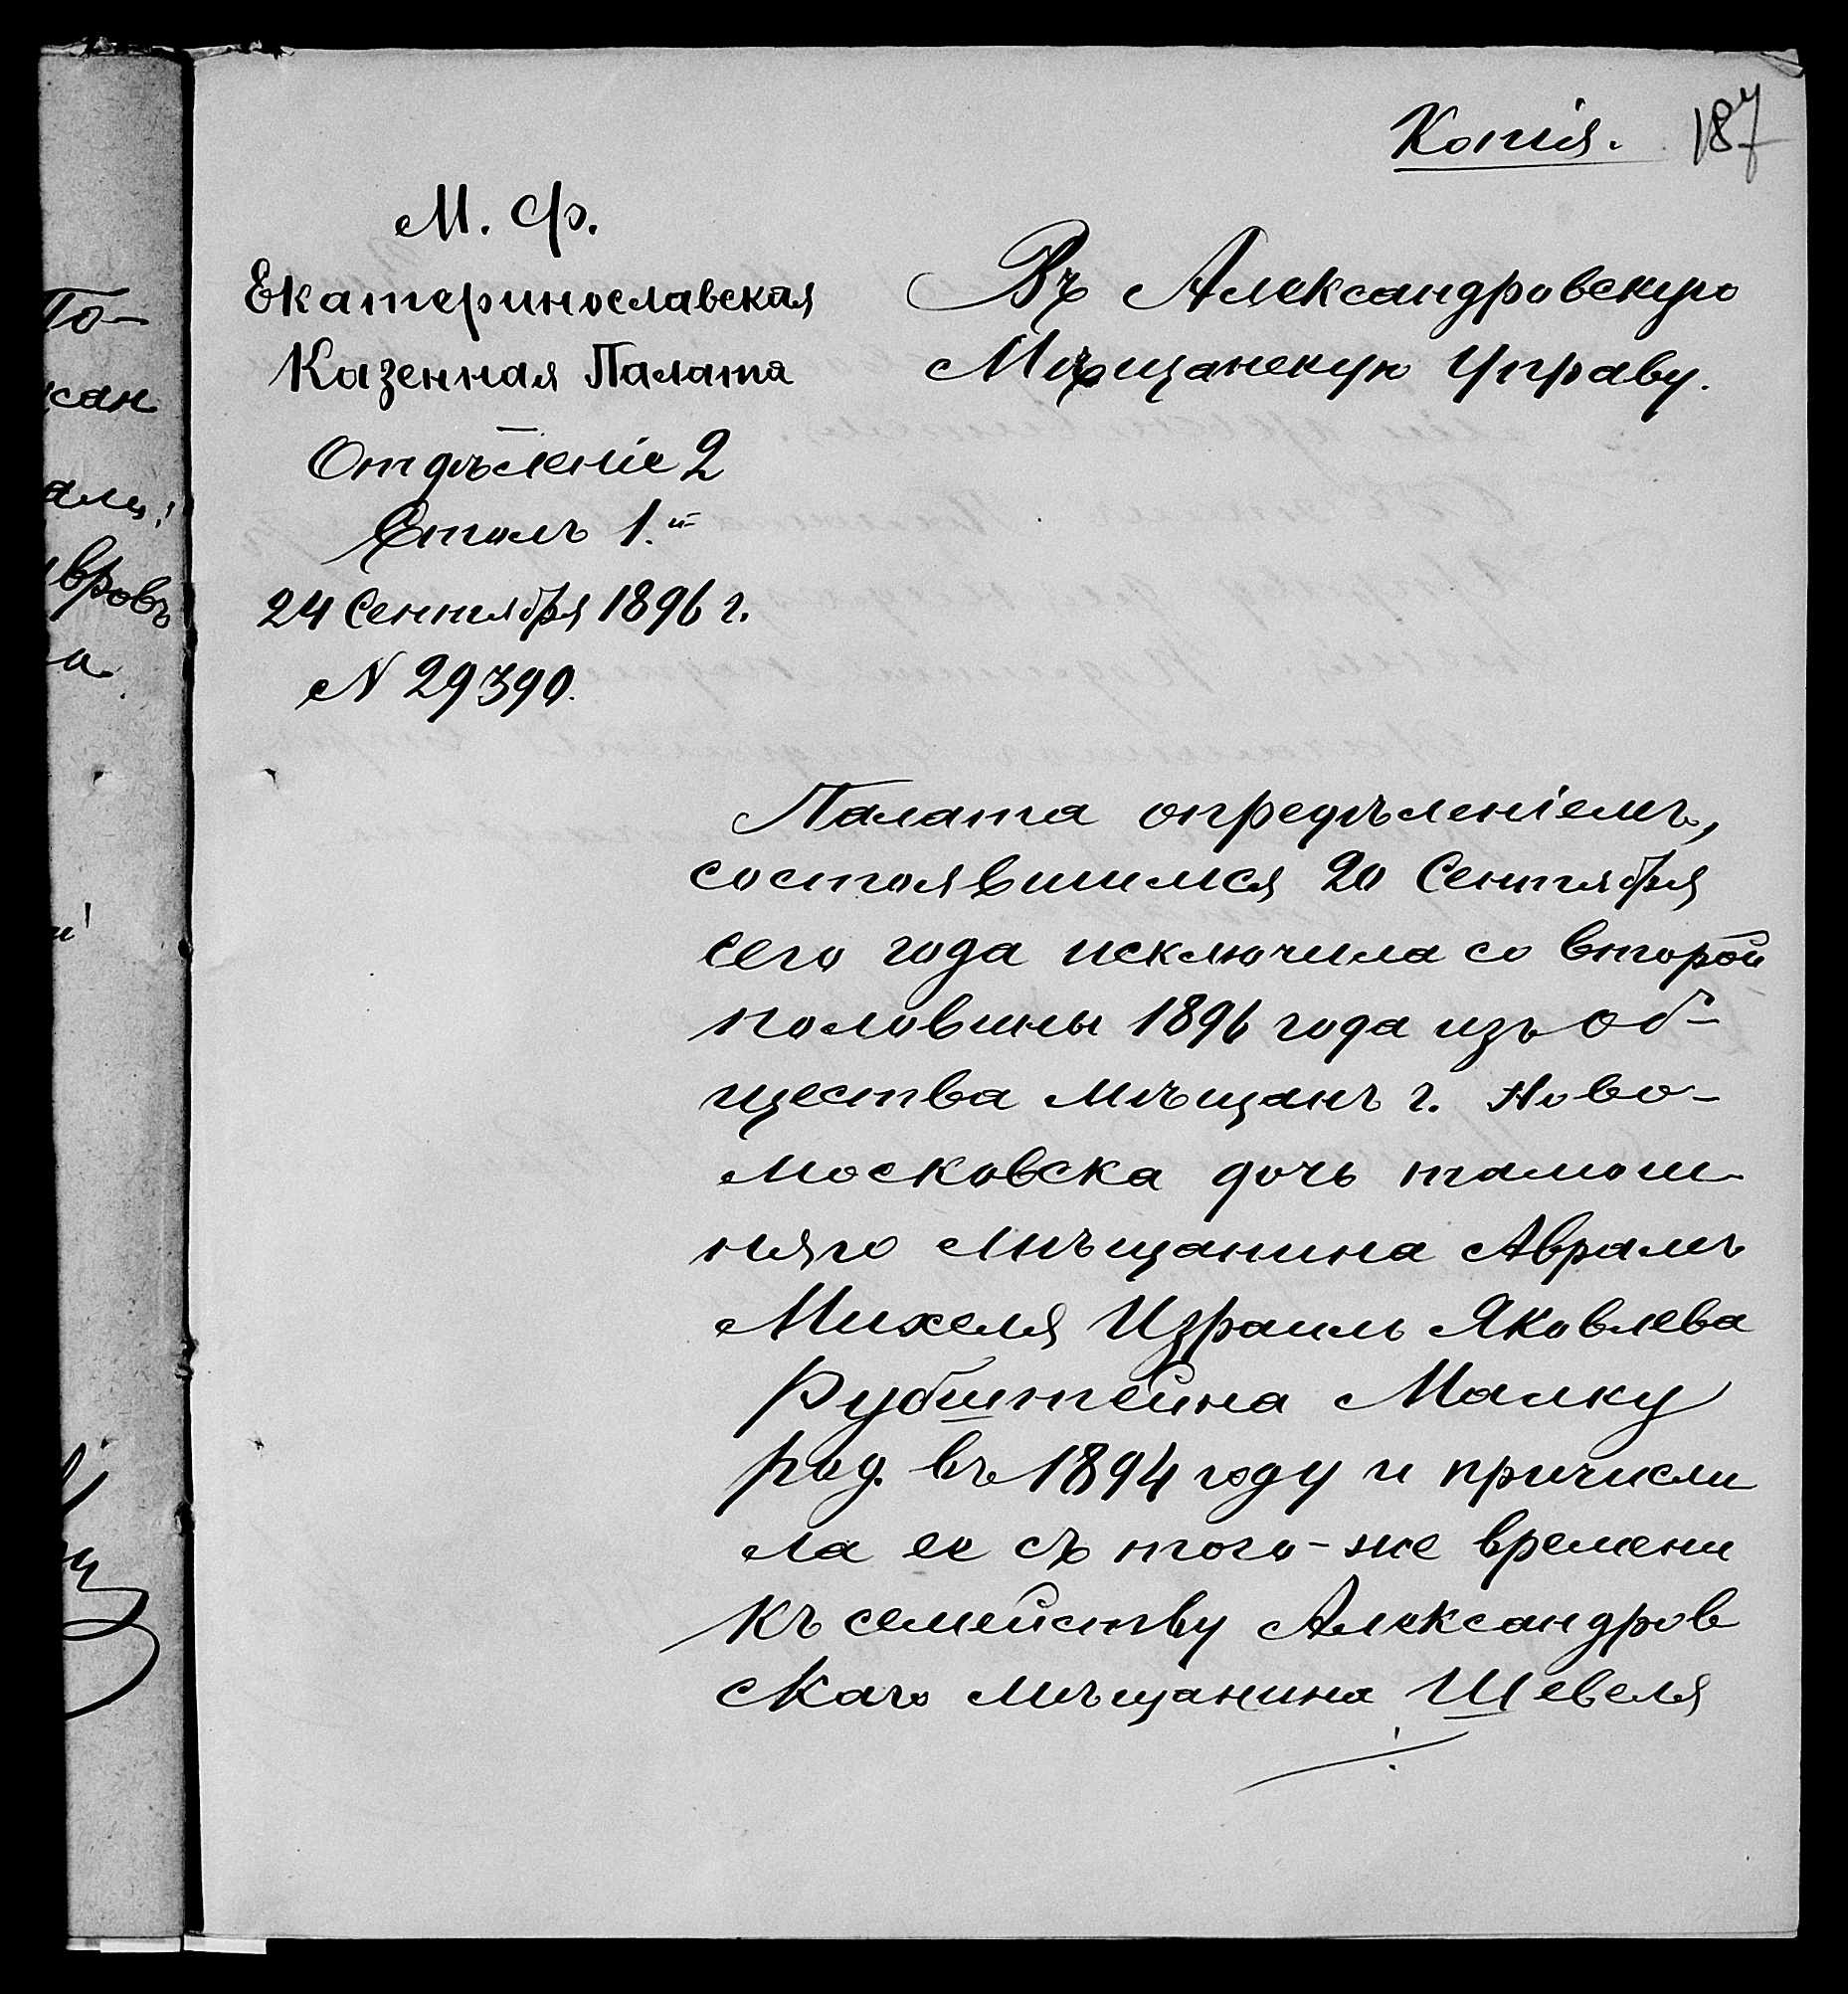 Копія. 187
М. Ф.
Екатеринославская
Казенная Палата
Отдѣленіе 2
Столъ 1.й
24 Сентября 1896 г.
N 29390.
Въ Александровскую
Мѣщанскую Управу.
Палата опредѣленіемъ,
состоявшимся 20 Сентября
сего года исключила со второй
половины 1896 года изъ об-
щества мѣщанъ г. Ново-
московска дочь тамош
няго мѣщанина Аврамъ
Михеля Израиль Яковлева
Рубштейна Малку
род. въ 1894 году и причисли
ла ее съ того-же времени
къ семейству Александров
скаго мѣщанина Шевеля
То-
сан
али,
вровъ
а